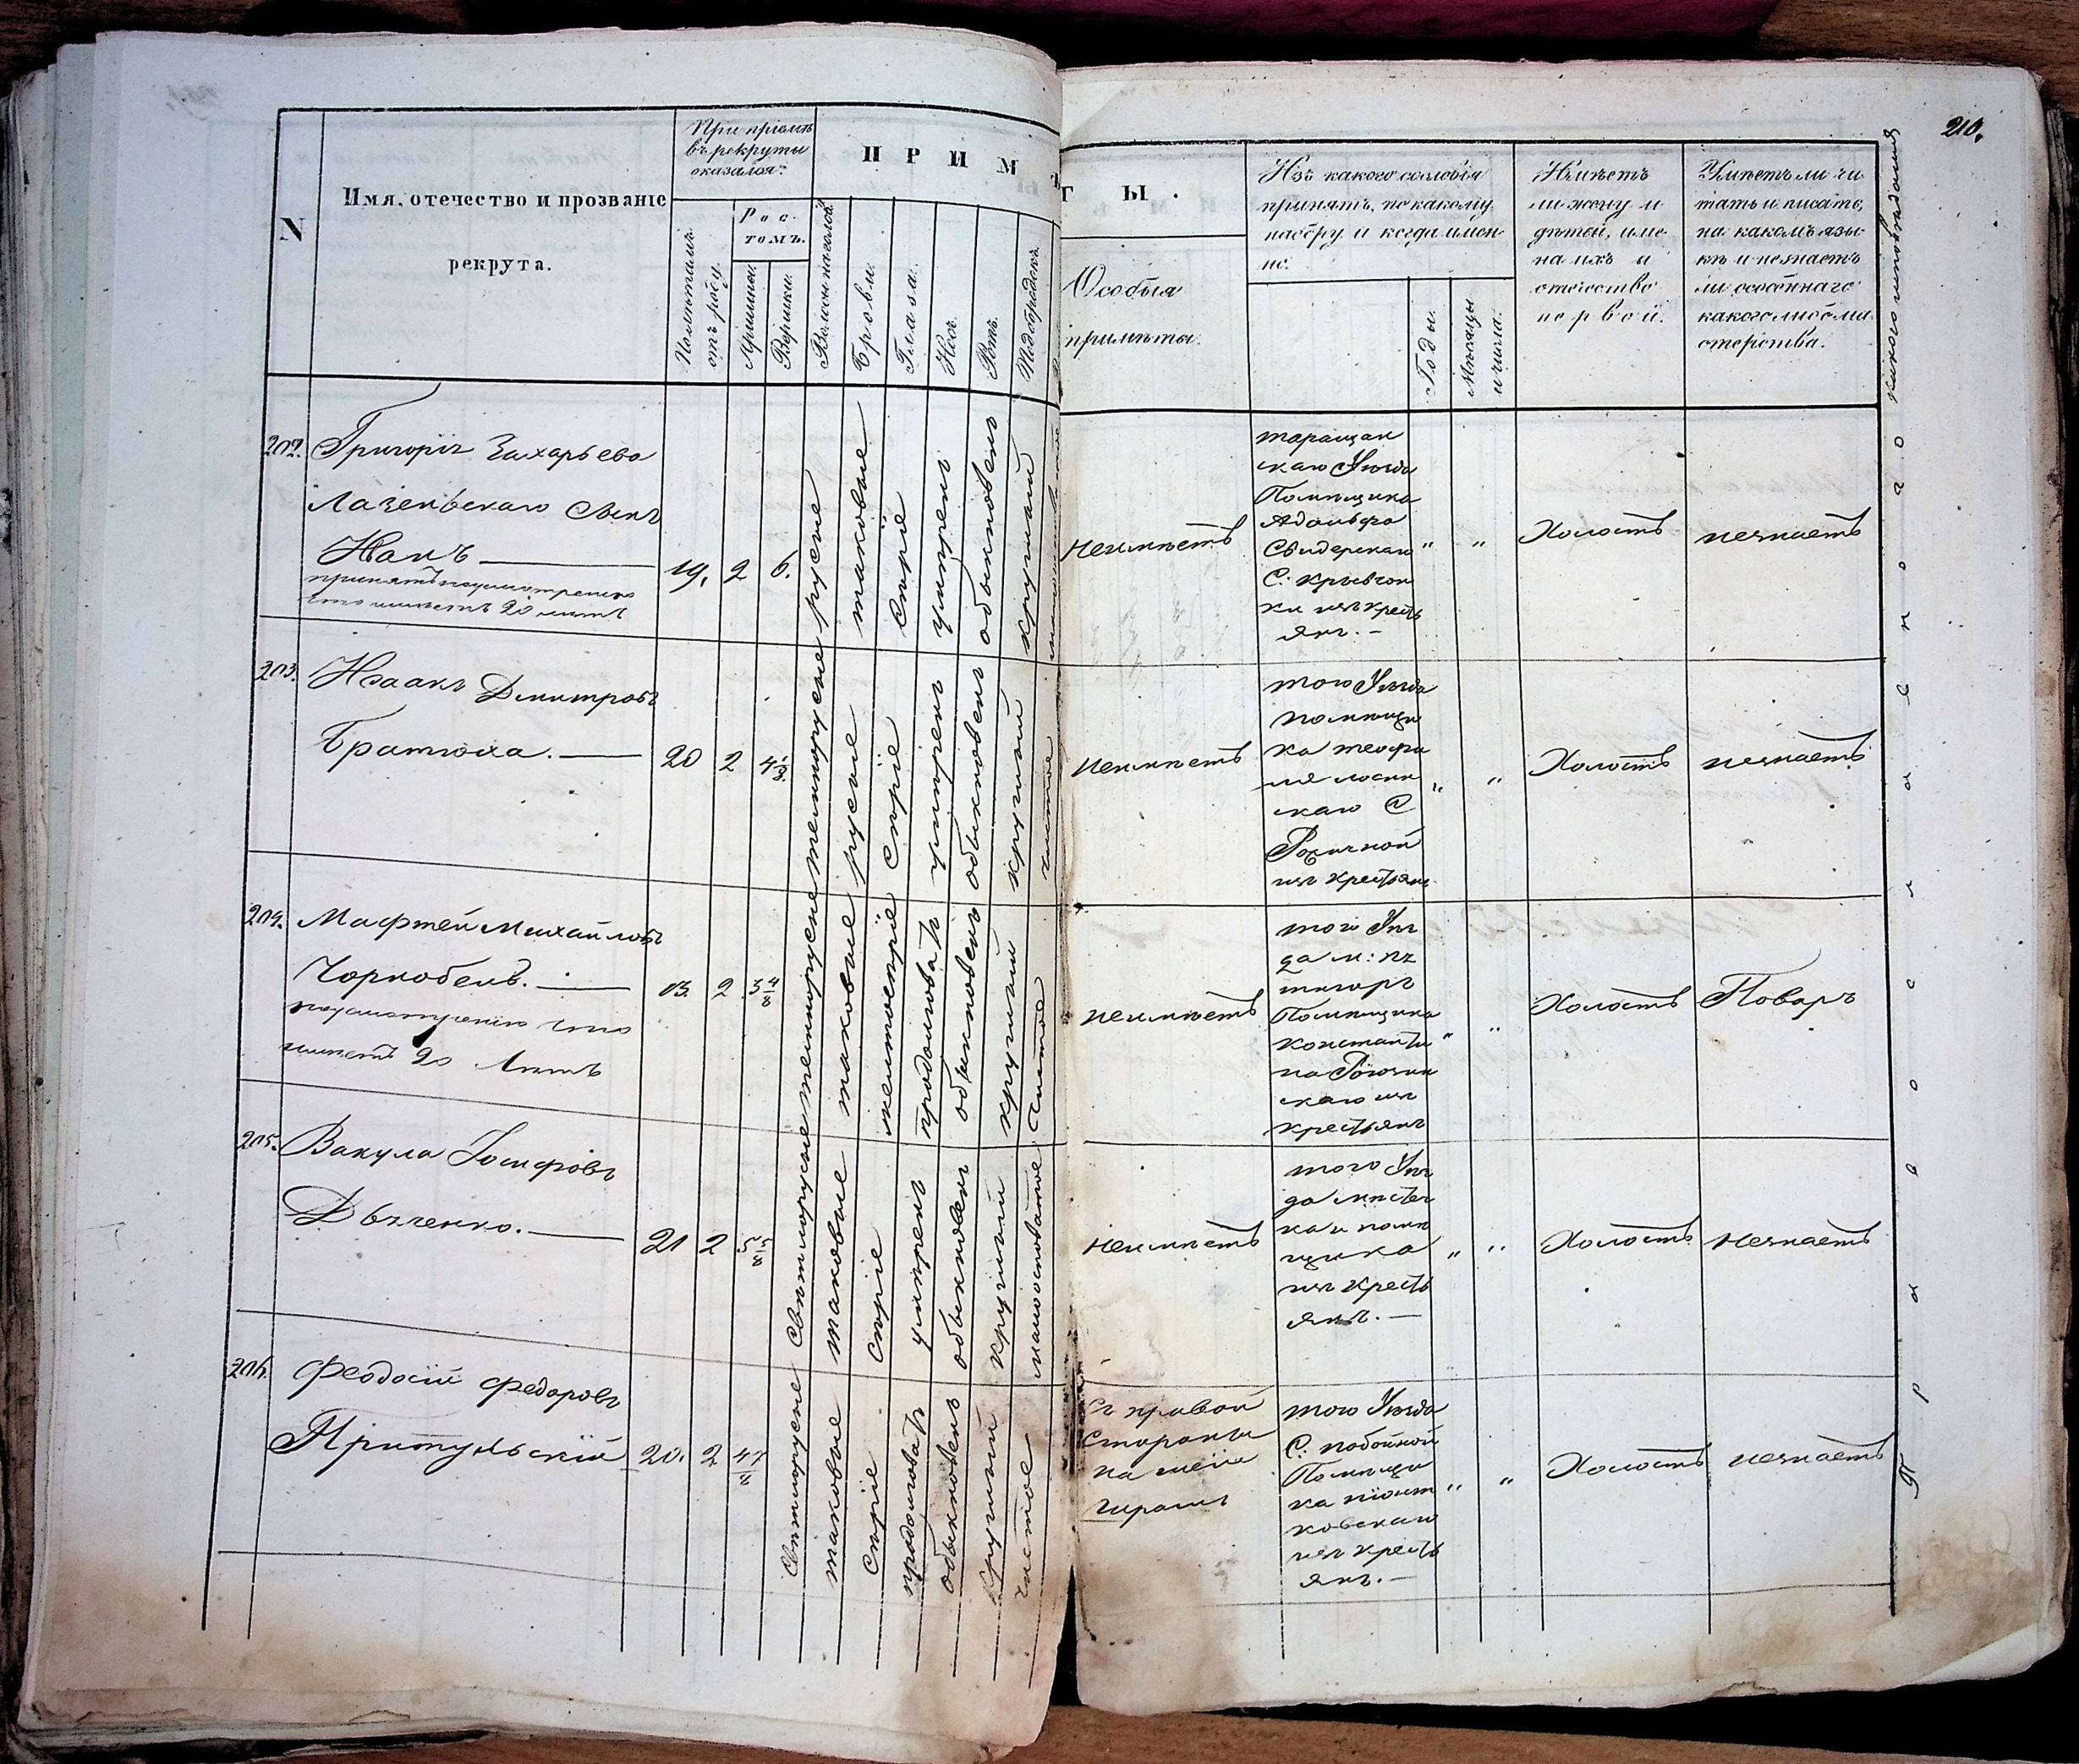 210.
N
Имя, отечество и прозваніе
рекрута.
При пріемѣ
въ рекруты
оказался:
Полѣтамъ
отъ роду.
Рос-
томъ.
Аршины.
Вершки.
ПРИМѢТЫ.
Волосы на головѣ
Брови.
Глаза.
Носъ.
Ротъ.
Подбородокъ.
Особыя
примѣты.
Изъ какого сословія
принятъ, по какому
набору и когда имен-
но.
Годы.
Мѣсяцы
и числа.
Имѣетъ
ли жену и
дѣтей, име-
на ихъ и
отечество
первой.
Умѣетъ ли чи-
тать и писать,
на какомъ язы-
кѣ и незнаетъ
ли особеннаго
какого либо ма-
стерства.
какого исповѣданія
202.
Григорій Захарьева
Лазеньскаго Сынъ
Иванъ
принятъ по усмотренію
что имѣетъ 20 летъ
19. 2 6.
русые
таковые
Серые
умѣренъ
обыкновенъ
круглый
неимѣетъ
таращан
скаго Уезда
Помѣщика
Адольфа
Свидерскаго
С: Крывчон
ки изъ крестъ
янъ. —
" "
Холостъ
незнаетъ
203.
Исаакъ Дмитровъ
Братюха. —
20 2 4 1/8
темнорусые
русые
Серые
умѣренъ
обыкновенъ
круглый
чистое
неимѣетъ
того Уезда
помѣщи
ка теофи
ля
скаго С
изъ крестьянъ
" "
Холостъ
незнаетъ
204.
Мафтей Михайловъ
Чорнобель. —
по усмотренію что
имѣетъ 20 Летъ
2 3 4/8
темнорусые
таковые
желтосерые
продолговатъ
обыкновенъ
круглый
Чистое
неимѣетъ
того Уез
да м:
Помѣщика
константи
на
скаго изъ
крестьянъ
" "
Холостъ
Поваръ
205.
Вакула Іосифовъ
Дьяченко. —
21 2 5 5/8
Светлорусые
таковые
Серые
умѣренъ
обыкновенъ
круглый
неимѣетъ
того Уез
да мѣстеч
ка и помѣ
щика
изъ Кресть
янъ. —
" "
Холостъ
Незнаетъ
206.
Феодосій Федоровъ
Притульскій
20. 2 4 7/8
Светлорусые
таковые
Серые
продолговатъ
обыкновенъ
Круглый
чистое
съ правой
Стороны
на шеѣ
шрамъ
того Уезда
С:
Помѣщи
ка
ковскаго
изъ кресть
янъ. —
" "
Холостъ
незнаетъ
Православного